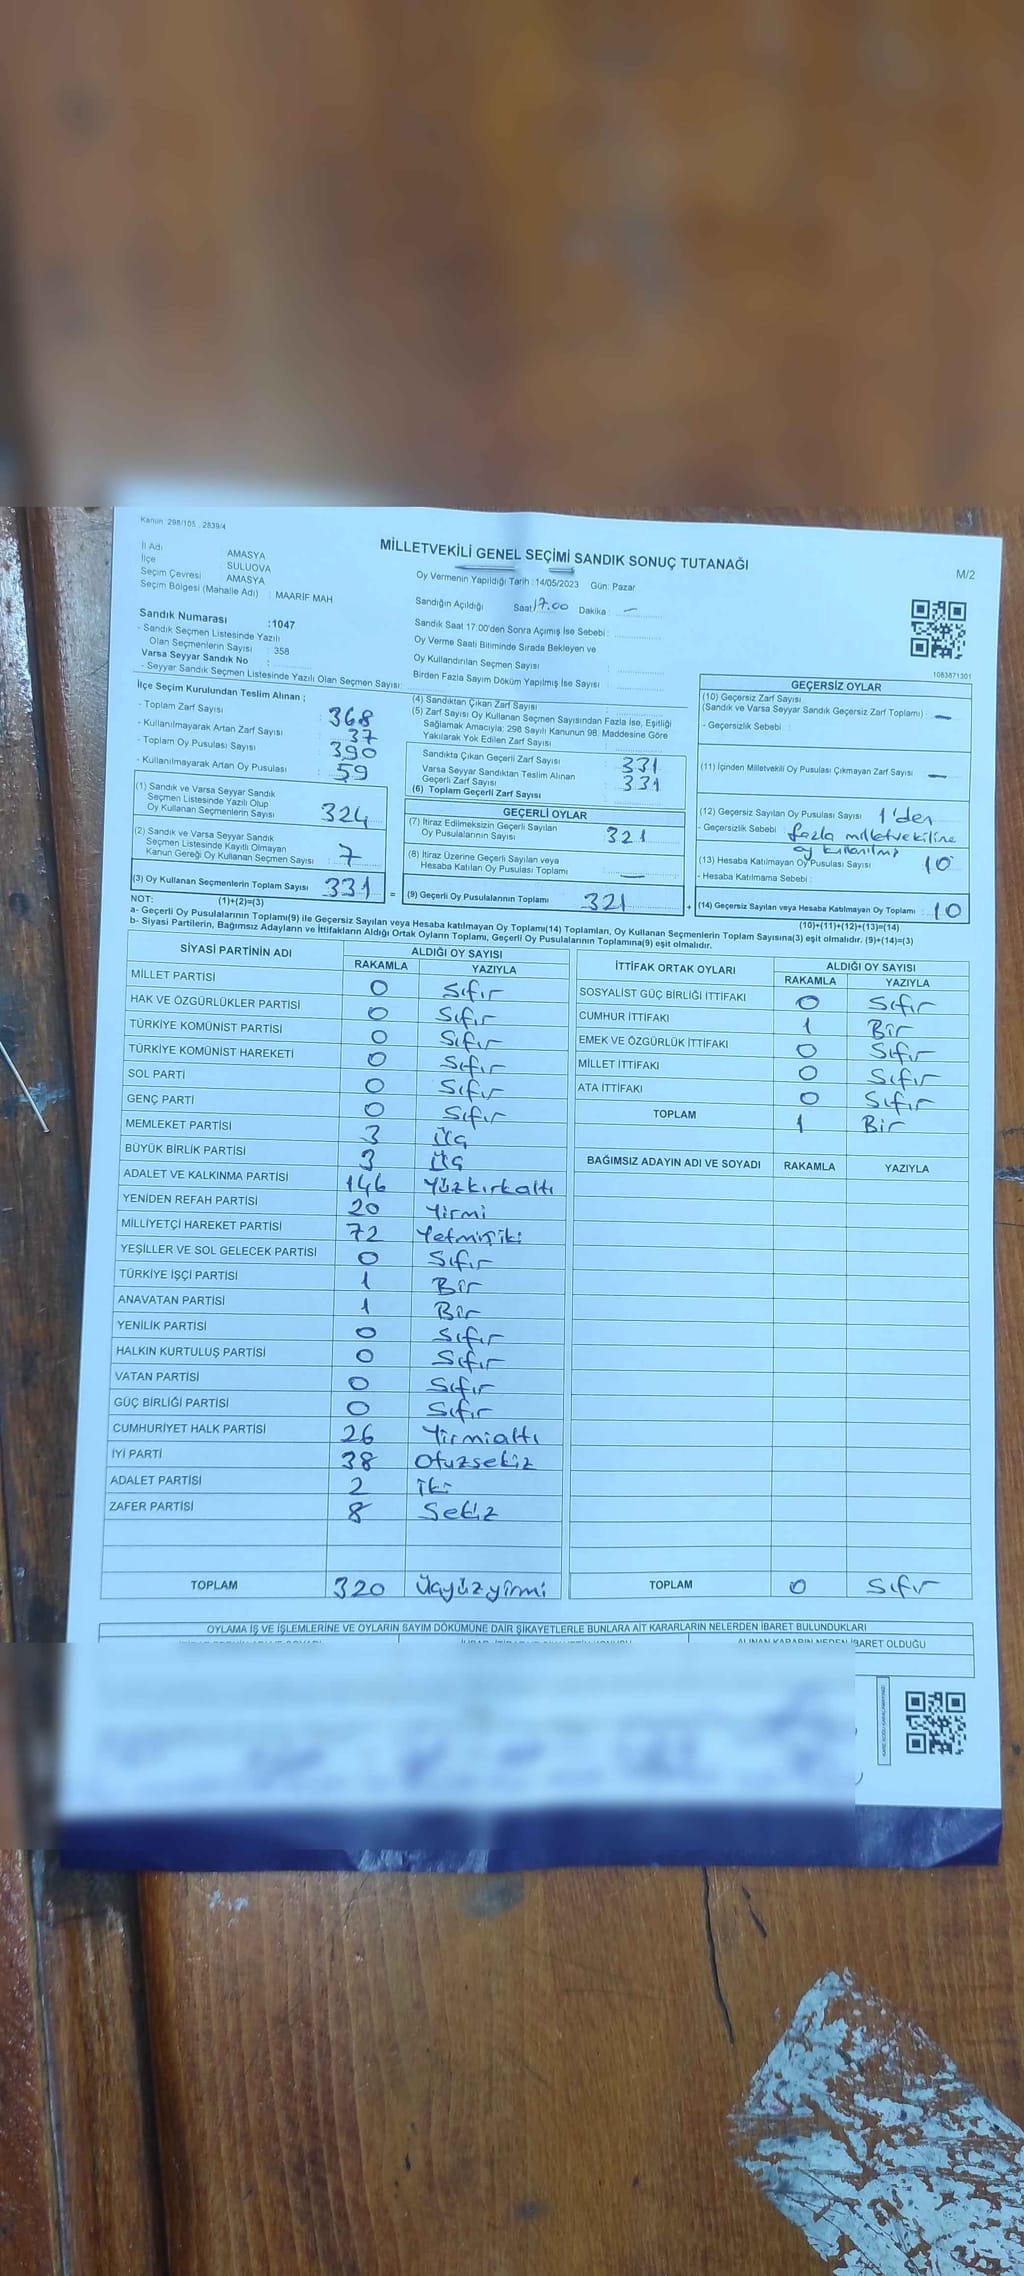 Kanun: 298/105 , 2839/4
MİLLETVEKİLİ GENEL SEÇİMİ SANDIK SONUÇ TUTANAĞI
M/2
İl Adı AMASYA
İlçe SULUOVA
Seçim Çevresi AMASYA
Seçim Bölgesi (Mahalle Adı) : MAARİF MAH
Oy Vermenin Yapıldığı Tarih : 14/05/2023 Gün: Pazar
Sandığın Açıldığı Saat 17.00 Dakika : —
Sandık Saat 17:00'den Sonra Açımış İse Sebebi :
Oy Verme Saati Bitiminde Sırada Bekleyen ve
Oy Kullandırılan Seçmen Sayısı :
Birden Fazla Sayım Döküm Yapılmış İse Sayısı :
Sandık Numarası :1047
- Sandık Seçmen Listesinde Yazılı
Olan Seçmenlerin Sayısı : 358
Varsa Seyyar Sandık No :
- Seyyar Sandık Seçmen Listesinde Yazılı Olan Seçmen Sayısı:
1083871301
İlçe Seçim Kurulundan Teslim Alınan ;
- Toplam Zarf Sayısı : 368
- Kullanılmayarak Artan Zarf Sayısı : 37
- Toplam Oy Pusulası Sayısı : 390
- Kullanılmayarak Artan Oy Pusulası : 59
(1) Sandık ve Varsa Seyyar Sandık
Seçmen Listesinde Yazılı Olup
Oy Kullanan Seçmenlerin Sayısı : 324
(2) Sandık ve Varsa Seyyar Sandık
Seçmen Listesinde Kayıtlı Olmayan
Kanun Gereği Oy Kullanan Seçmen Sayısı : 7
(3) Oy Kullanan Seçmenlerin Toplam Sayısı : 331
(1)+(2)=(3)
(4) Sandıktan Çıkan Zarf Sayısı :
(5) Zarf Sayısı Oy Kullanan Seçmen Sayısından Fazla İse, Eşitliği
Sağlamak Amacıyla; 298 Sayılı Kanunun 98. Maddesine Göre
Yakılarak Yok Edilen Zarf Sayısı :
Sandıkta Çıkan Geçerli Zarf Sayısı : 331
Varsa Seyyar Sandıktan Teslim Alınan
Geçerli Zarf Sayısı : 331
(6) Toplam Geçerli Zarf Sayısı
GEÇERLİ OYLAR
(7) İtiraz Edilmeksizin Geçerli Sayılan
Oy Pusulalarının Sayısı : 321
(8) İtiraz Üzerine Geçerli Sayılan veya
Hesaba Katılan Oy Pusulası Toplamı : —
= (9) Geçerli Oy Pusulalarının Toplamı 321
GEÇERSİZ OYLAR
(10) Geçersiz Zarf Sayısı
(Sandık ve Varsa Seyyar Sandık Geçersiz Zarf Toplamı) : —
- Geçersizlik Sebebi :
(11) İçinden Milletvekili Oy Pusulası Çıkmayan Zarf Sayısı : —
(12) Geçersiz Sayılan Oy Pusulası Sayısı : 1'den
- Geçersizlik Sebebi : fazla milletvekiline
oy kullanılmış
(13) Hesaba Katılmayan Oy Pusulası Sayısı : 10
- Hesaba Katılmama Sebebi :
+ (14) Geçersiz Sayılan veya Hesaba Katılmayan Oy Toplamı : 10
(10)+(11)+(12)+(13)=(14)
NOT:
a- Geçerli Oy Pusulalarının Toplamı(9) ile Geçersiz Sayılan veya Hesaba katılmayan Oy Toplamı(14) Toplamları, Oy Kullanan Seçmenlerin Toplam Sayısına(3) eşit olmalıdır. (9)+(14)=(3)
b- Siyasi Partilerin, Bağımsız Adayların ve İttifakların Aldığı Ortak Oyların Toplamı, Geçerli Oy Pusulalarının Toplamına(9) eşit olmalıdır.
SİYASİ PARTİNİN ADI ALDIĞI OY SAYISI
RAKAMLA YAZIYLA
MİLLET PARTİSİ 0 Sıfır
HAK VE ÖZGÜRLÜKLER PARTİSİ 0 Sıfır
TÜRKİYE KOMÜNİST PARTİSİ 0 Sıfır
TÜRKİYE KOMÜNİST HAREKETİ 0 Sıfır
SOL PARTİ 0 Sıfır
GENÇ PARTİ 0 Sıfır
MEMLEKET PARTİSİ 3 Üç
BÜYÜK BİRLİK PARTİSİ 3 Üç
ADALET VE KALKINMA PARTİSİ 146 Yüzkırkaltı
YENİDEN REFAH PARTİSİ 20 Yirmi
MİLLİYETÇİ HAREKET PARTİSİ 72 Yetmişiki
YEŞİLLER VE SOL GELECEK PARTİSİ 0 Sıfır
TÜRKİYE İŞÇİ PARTİSİ 1 Bir
ANAVATAN PARTİSİ 1 Bir
YENİLİK PARTİSİ 0 Sıfır
HALKIN KURTULUŞ PARTİSİ 0 Sıfır
VATAN PARTİSİ 0 Sıfır
GÜÇ BİRLİĞİ PARTİSİ 0 Sıfır
CUMHURİYET HALK PARTİSİ 26 Yirmialtı
İYİ PARTİ 38 Otuzsekiz
ADALET PARTİSİ 2 İki
ZAFER PARTİSİ 8 Sekiz
TOPLAM 320 Üçyüzyirmi
İTTİFAK ORTAK OYLARI ALDIĞI OY SAYISI
RAKAMLA YAZIYLA
SOSYALİST GÜÇ BİRLİĞİ İTTİFAKI 0 Sıfır
CUMHUR İTTİFAKI 1 Bir
EMEK VE ÖZGÜRLÜK İTTİFAKI 0 Sıfır
MİLLET İTTİFAKI 0 Sıfır
ATA İTTİFAKI 0 Sıfır
TOPLAM 1 Bir
BAĞIMSIZ ADAYIN ADI VE SOYADI RAKAMLA YAZIYLA
TOPLAM 0 Sıfır
OYLAMA İŞ VE İŞLEMLERİNE VE OYLARIN SAYIM DÖKÜMÜNE DAİR ŞİKAYETLERLE BUNLARA AİT KARARLARIN NELERDEN İBARET BULUNDUKLARI
ALINAN KARARIN NEDEN İBARET OLDUĞU